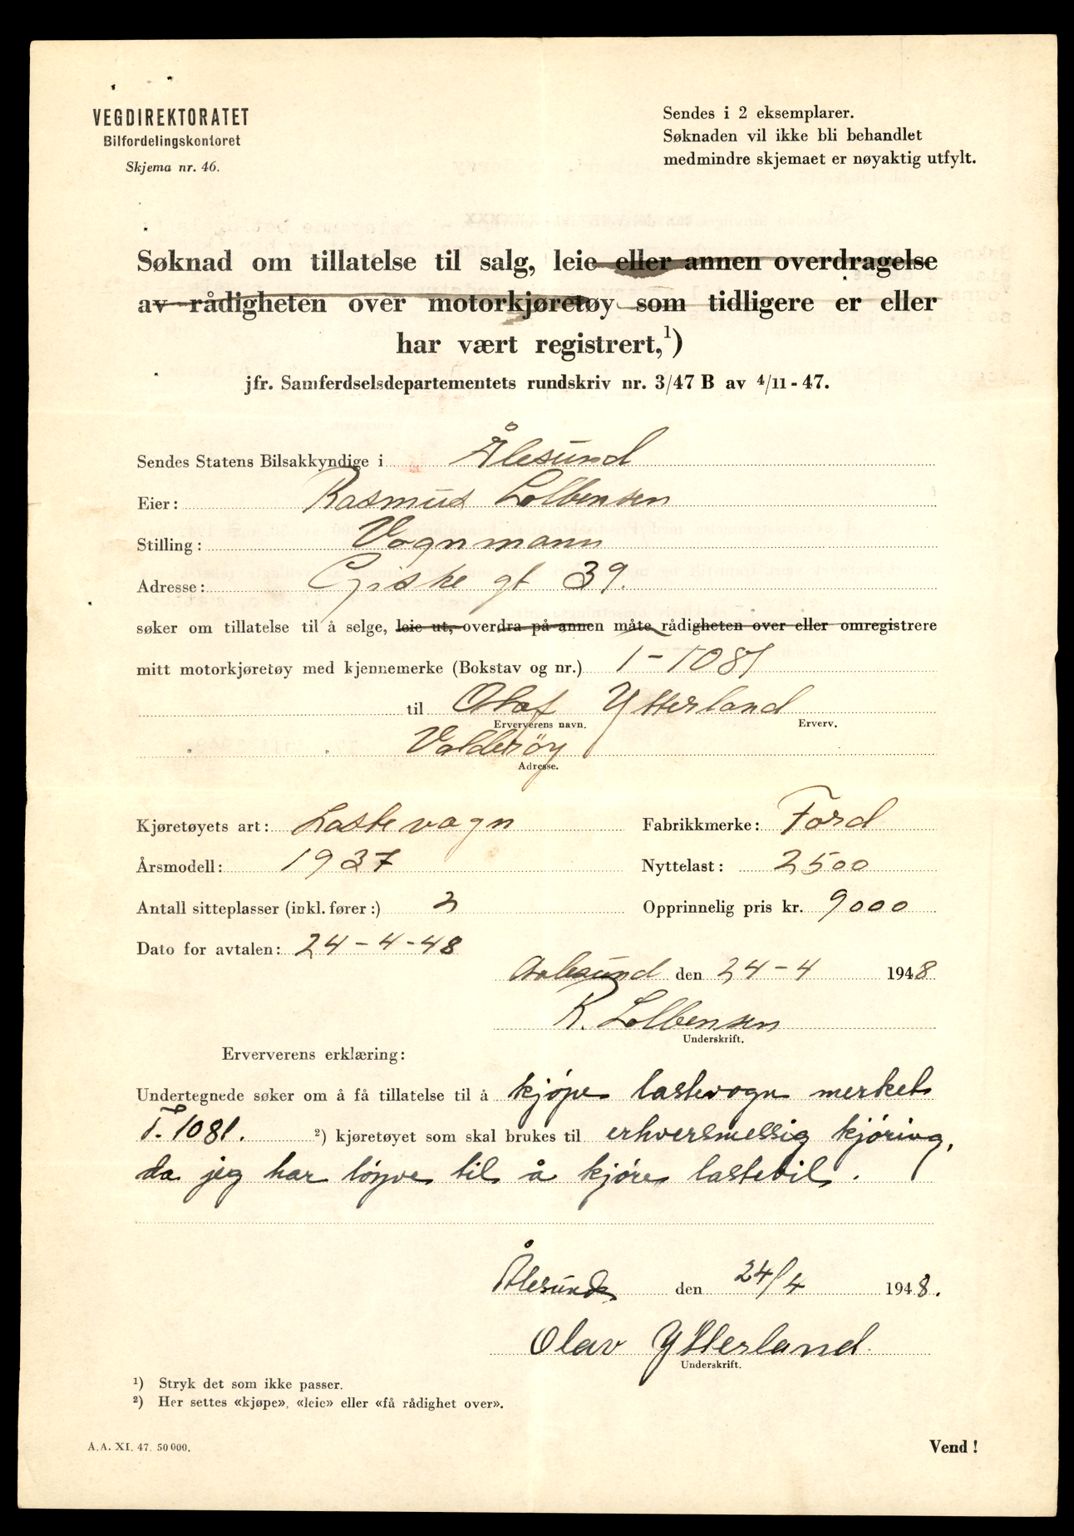 VEGDIREKTORATET
Bilfordelingskontoret
Skjema nr. 46.
Sendes i 2 eksemplarer.
Søknaden vil ikke bli behandlet
medmindre skjemaet er nøyaktig utfylt.
Søknad om tillatelse til salg, leie eller annen overdragelse
av rådigheten over motorkjøretøy som tidligere er eller
har vært registrert,¹)
jfr. Samferdselsdepartementets rundskriv nr. 3/47 B av 4/11 - 47.
Sendes Statens Bilsakkyndige i Ålesund
Eier: Rasmus Lolbensen
Stilling: Vognmann
Adresse: Giske gt 39.
søker om tillatelse til å selge, leie ut, overdra på annen måte rådigheten over eller omregistrere
mitt motorkjøretøy med kjennemerke (Bokstav og nr.) T-1081
til Olaf Ytterland
Erververens navn. Erverv.
Valderøy
Adresse.
Kjøretøyets art: Lastevogn Fabrikkmerke: Ford
Årsmodell: 1937 Nyttelast: 2500
Antall sitteplasser (inkl. fører:) 3 Opprinnelig pris kr. 9000
Dato for avtalen: 24-4-48
Aalesund den 24-4 1948
R. Lolbensen
Underskrift.
Erververens erklæring:
Undertegnede søker om å få tillatelse til å kjöpe lastevogn merket
T. 1081. ²) kjøretøyet som skal brukes til erhversmessig kjöring,
da jeg har löyve til å kjöre lastebil.
Ålesund den 24/4 1948.
Olav Ytterland.
Underskrift.
¹) Stryk det som ikke passer.
²) Her settes «kjøpe», «leie» eller «få rådighet over».
A.A. XI. 47. 50 000.
Vend !